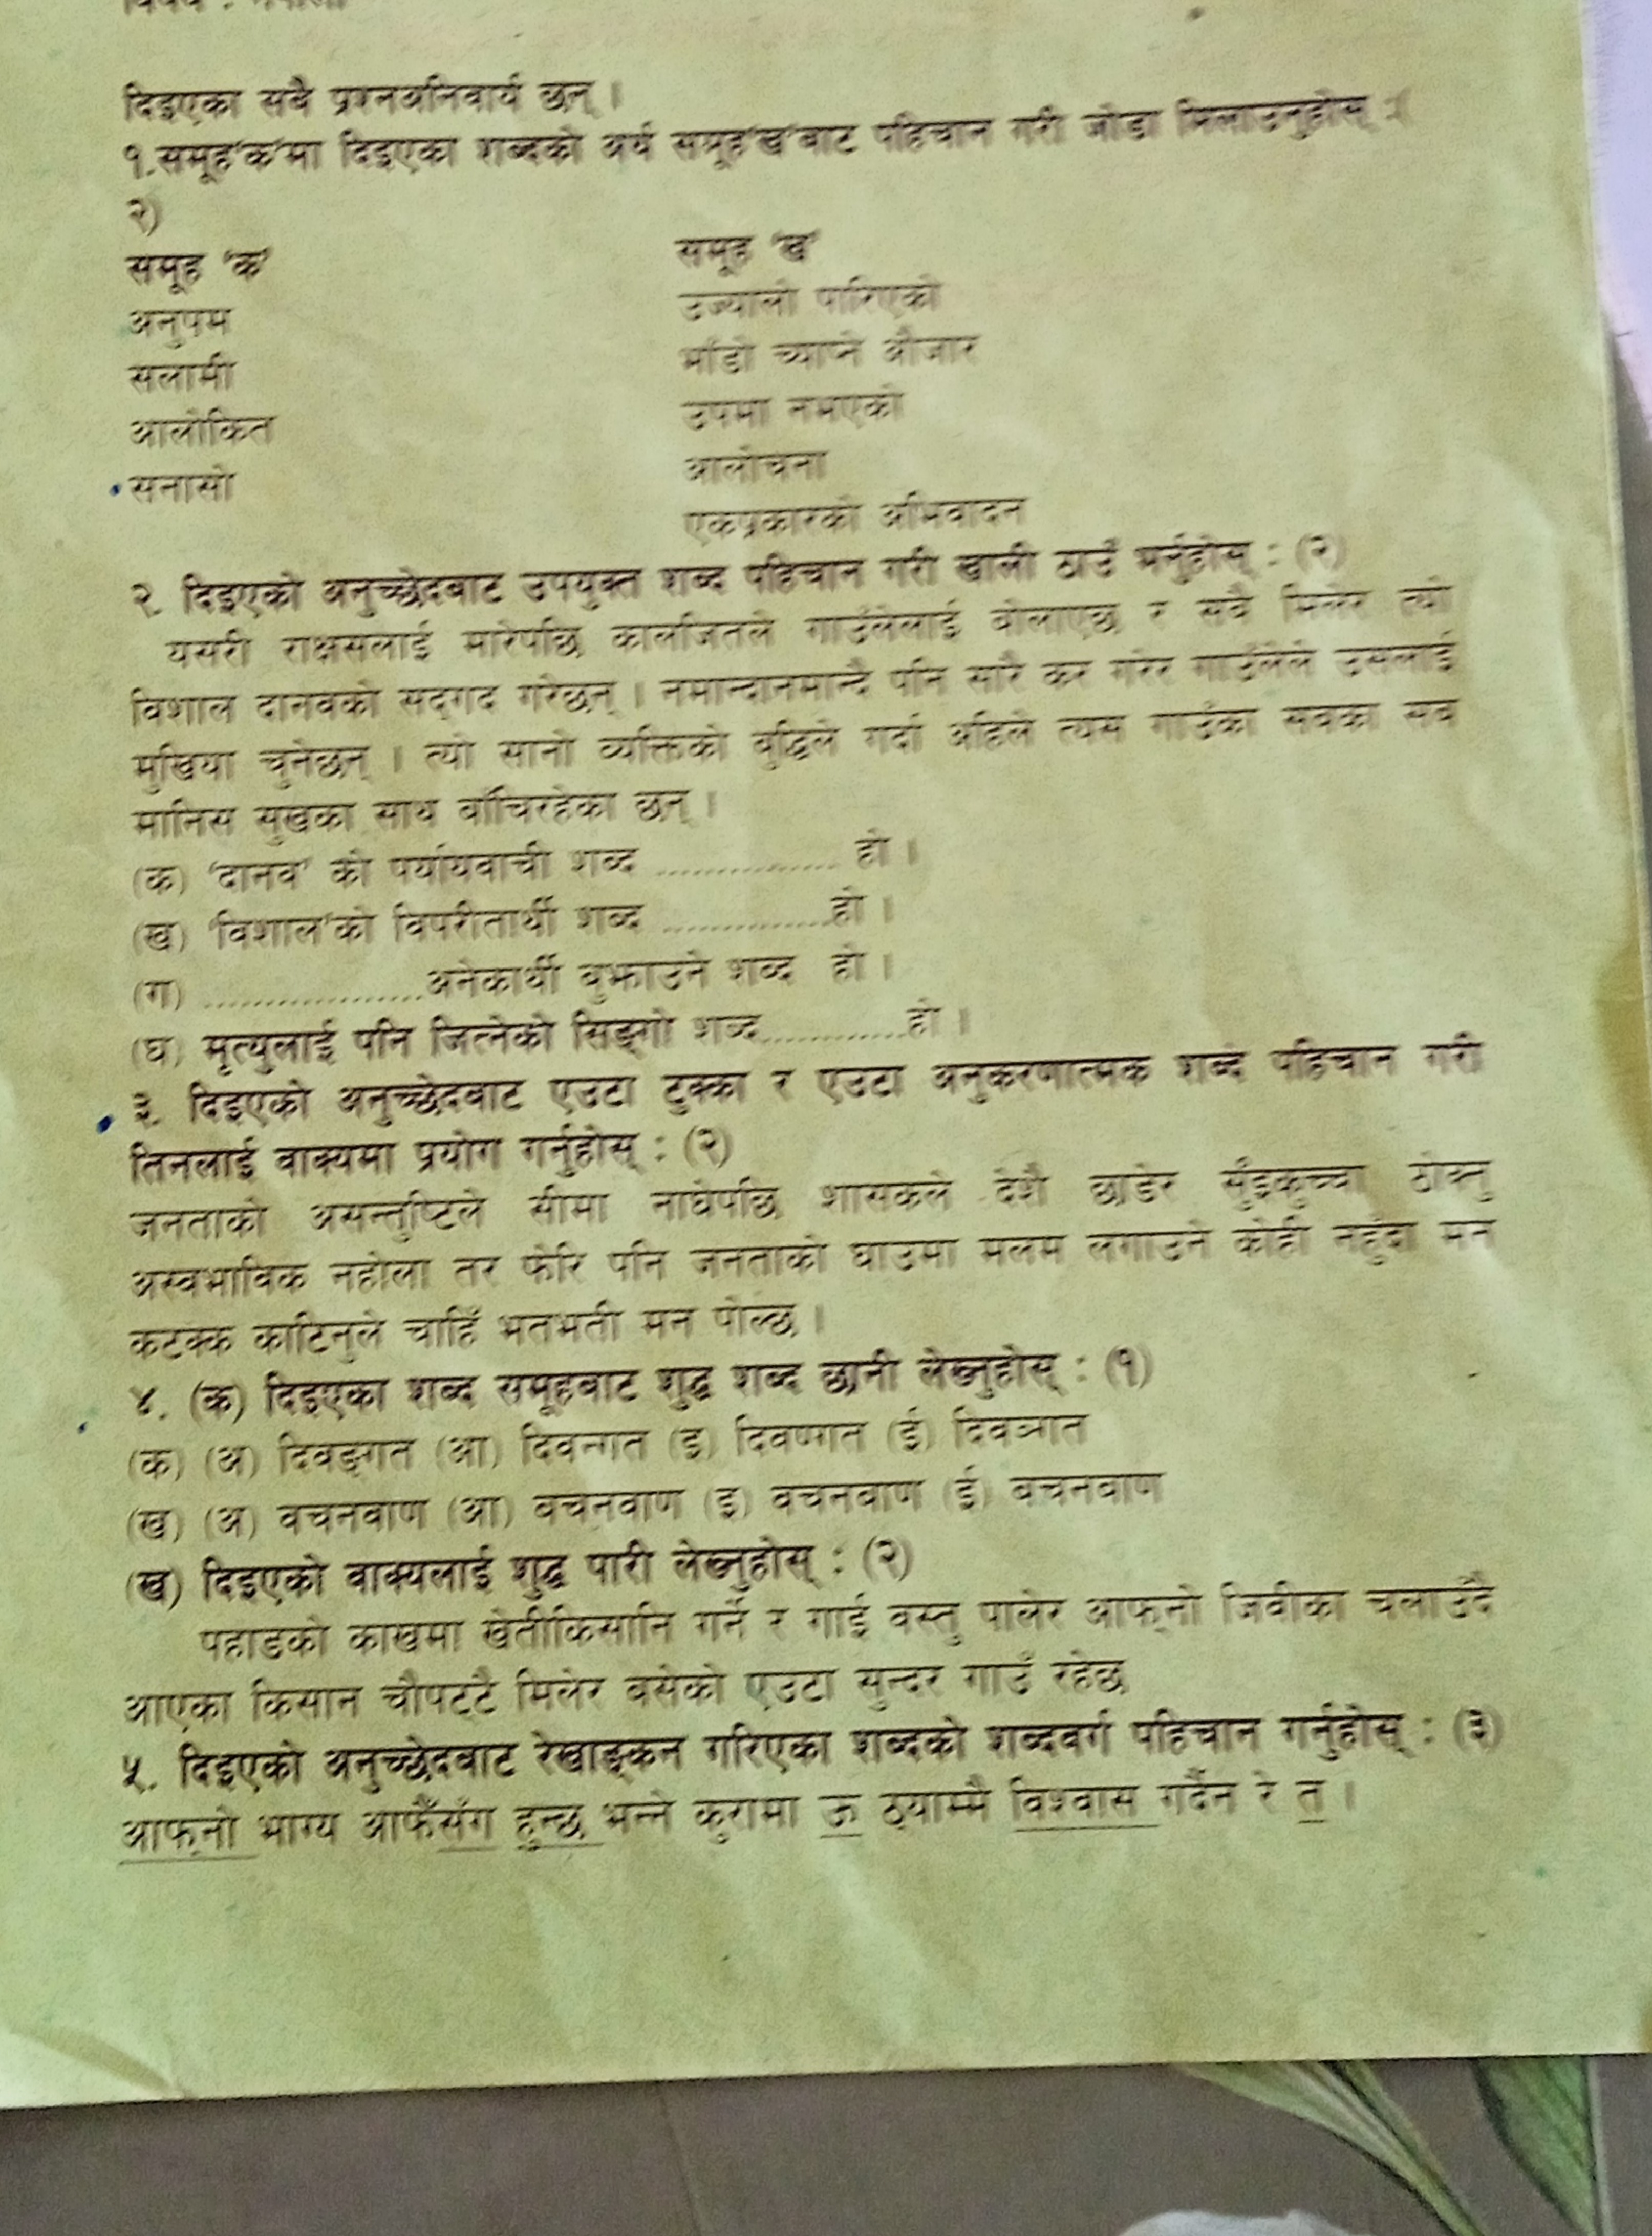 दिइएका सबै प्रश्नअनिवार्य छन् ।
१.समूह'क'मा दिइएका शब्दको अर्थ समूह'ख'बाट पहिचान गरी जोडा मिलाउनुहोस् :(
२)
समूह 'क' समूह 'ख'
अनुपम उज्यालो पारिएको
सलामी भाँडो च्याप्ने औजार
आलोकित उपमा नभएको
सनासो आलोचना
एकप्रकारको अभिवादन
२. दिइएको अनुच्छेदबाट उपयुक्त शब्द पहिचान गरी खाली ठाउँ भर्नुहोस् : (२)
यसरी राक्षसलाई मारेपछि कालजितले गाउँलेलाई बोलाएछ र सबै मिलेर त्यो
विशाल दानवको सद्गद गरेछन् । नमान्दानमान्दै पनि सारै कर गरेर गाउँलेले उसलाई
मुखिया चुनेछन् । त्यो सानो व्यक्तिको बुद्धिले गर्दा अहिले त्यस गाउँका सबका सब
मानिस सुखका साथ बाँचिरहेका छन् ।
(क) 'दानव' को पर्यायवाची शब्द ................ हो ।
(ख) 'विशाल'को विपरीतार्थी शब्द ...............हो ।
(ग) ....................अनेकार्थी बुझाउने शब्द हो ।
(घ) मृत्युलाई पनि जित्नेको सिङ्गो शब्द.............हो ।
३. दिइएको अनुच्छेदबाट एउटा टुक्का र एउटा अनुकरणात्मक शब्द पहिचान गरी
तिनलाई वाक्यमा प्रयोग गर्नुहोस् : (२)
जनताको असन्तुष्टिले सीमा नाघेपछि शासकले देशै छाडेर सुँइकुच्चा ठोक्नु
अस्वभाविक नहोला तर फेरि पनि जनताको घाउमा मलम लगाउने कोही नहुँदा मन
कटक्क काटिनुले चाहिँ भतभती मन पोल्छ ।
४. (क) दिइएका शब्द समूहबाट शुद्ध शब्द छानी लेख्नुहोस् : (१)
(क) (अ) दिवङ्गत (आ) दिवन्गत (इ) दिवण्गत (ई) दिवञ्गत
(ख) (अ) (आ) (इ) (ई)
(ख) दिइएको वाक्यलाई शुद्ध पारी लेख्नुहोस् : (२)
पहाडको काखमा खेतीकिसानि गर्ने र गाई वस्तु पालेर आफ्नो जिवीका चलाउँदै
आएका किसान चौपट्टै मिलेर बसेको एउटा सुन्दर गाउँ रहेछ
५. दिइएको अनुच्छेदबाट रेखाङ्कन गरिएका शब्दको शब्दवर्ग पहिचान गर्नुहोस् : (३)
आफ्नो भाग्य आफैँसँग हुन्छ भन्ने कुरामा ऊ ठ्याम्मै विश्वास गर्दैन रे त ।